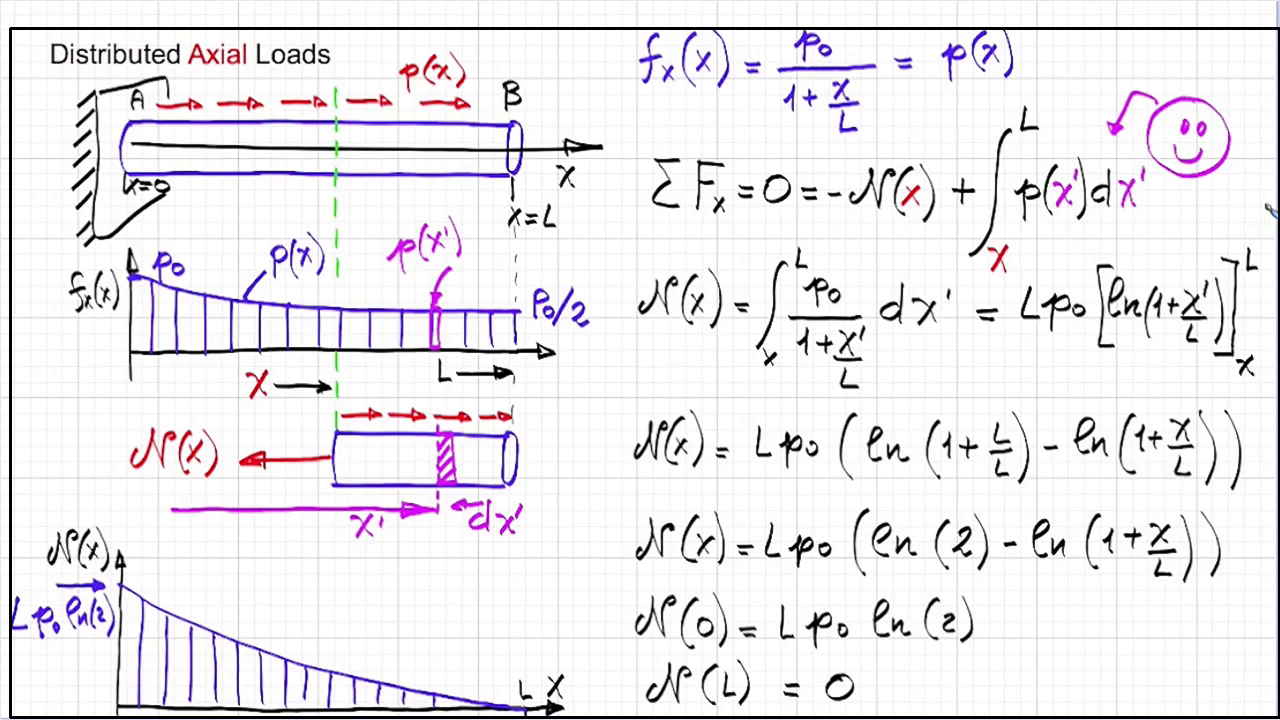 Distributed Axial Loads
A p(x) B
x=0 x
x=L
fx(x) p0 p(x) p(x') p0/2
x L
N(x)
x' dx'
N(x)
L p0 ln(2)
L x
fx(x) = p0/(1+x/L) = p(x)
ΣFx = 0 = -N(x) + ∫_x^L p(x')dx'
N(x) = ∫_x^L p0/(1+x'/L) dx' = Lp0 [ln(1+x'/L)]_x^L
N(x) = Lp0 (ln(1+L/L) - ln(1+x/L))
N(x) = Lp0 (ln(2) - ln(1+x/L))
N(0) = Lp0 ln(2)
N(L) = 0